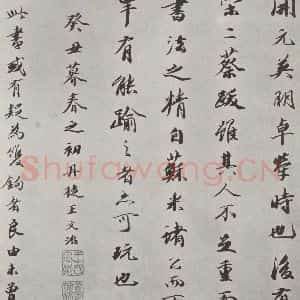 開元英明卓犖時也後有
二蔡跋雖其人不足重而
書法之精自蘇米諸公而
有能踰之者亦可玩也
癸丑暮春之初丹徒王文治
此書或有疑為雙鈎者良由未曾
Shufawang.CN